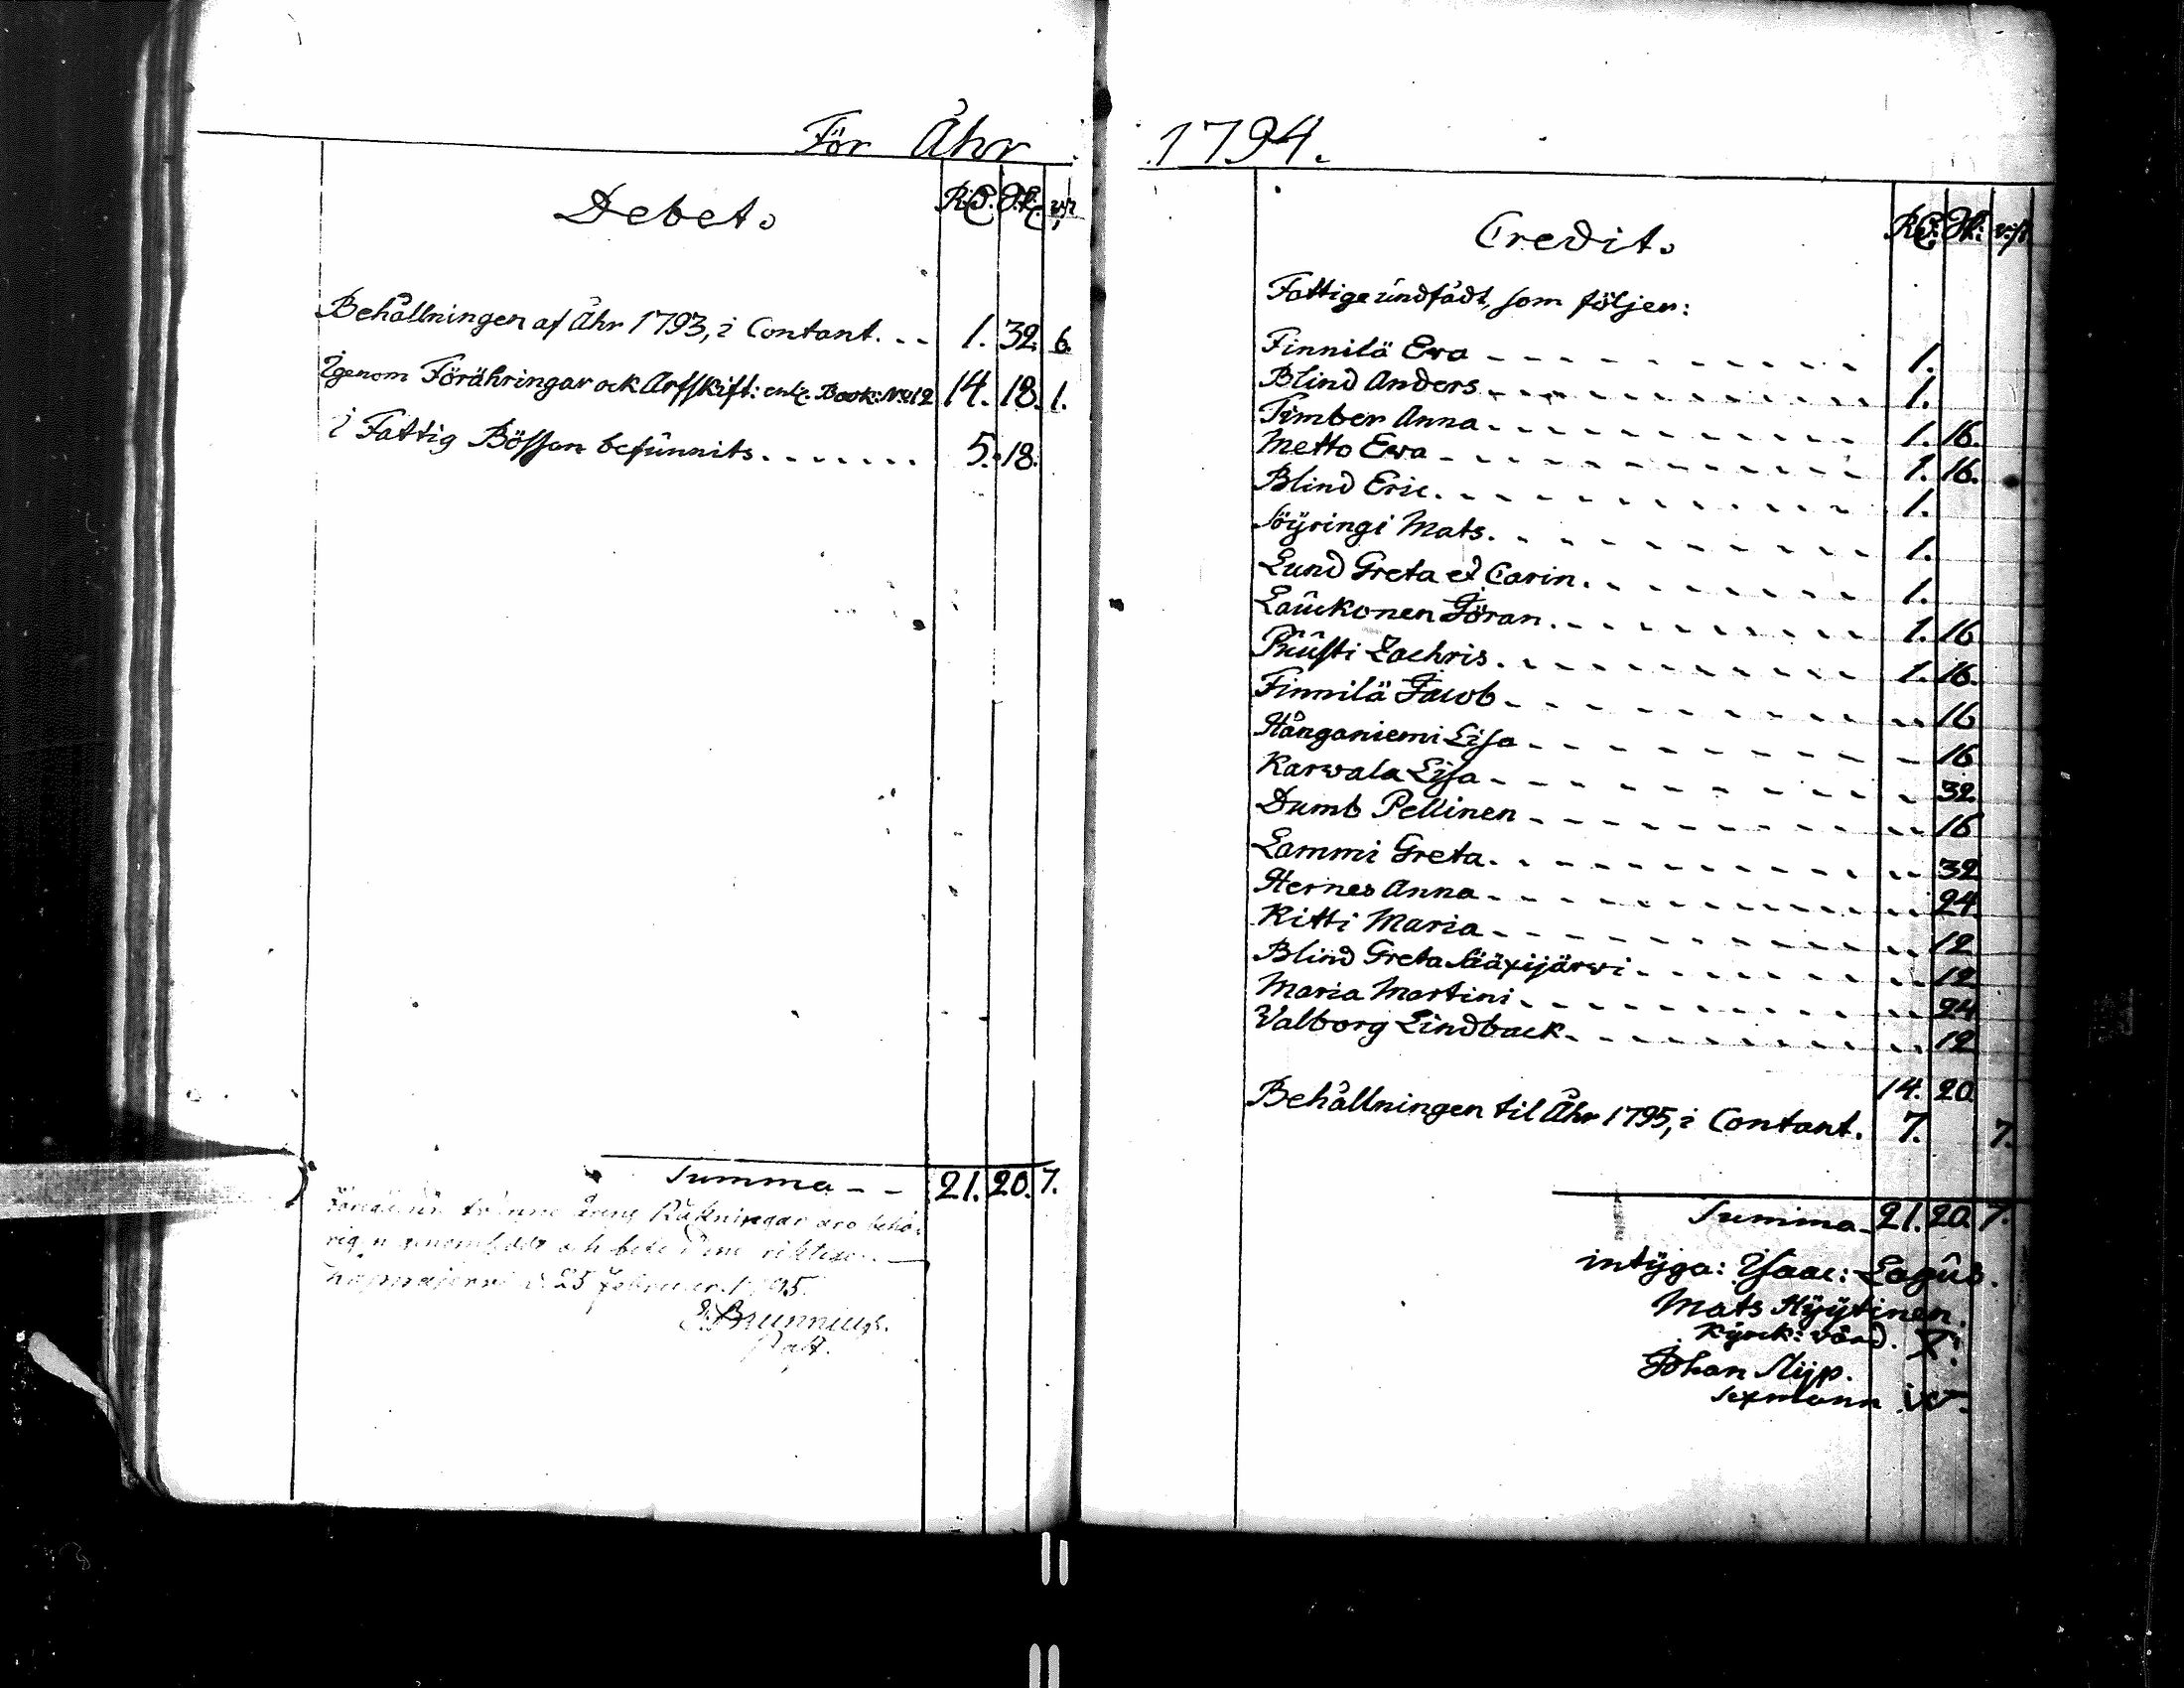 För Åhr 1794.
Debet.
R:d. Sk: r:st
Behållningen af Åhr 1793, i Contant. .. 1. 32. 6.
Igenom Förähringar ock Arfskift: enl. Book: No: 12 14. 18. 1.
i Fattig Bössan befunnits. . . . . . . . 5. 18.
Summa - - 21. 20. 7.
tvenne årens Räkningar äro behö-
rigen och riktige.
d. 25 Februar. 1795.
Brunnius.
Past.
Credit.
R:d. Sk: r:st
Fattige undfådt, som följer:
Finnilä Eva - - - - - - - - - 1.
Blind Anders. - - - - - - - - - 1.
Timber Anna. - - - - - - - - - 1. 16.
Metto Ewa - - - - - - - - - 1. 16.
Blind Eric. - - - - - - - - - 1.
Söyringi Mats. - - - - - - - - - 1.
Lund Greta et Carin. - - - - - - - 1.
Lauckonen Jöran. - - - - - - - - 1. 16
Zachris. - - - - - - - - - 1. 16.
Finnilä Jacob - - - - - - - - - 16
Hånganiemi Lisa - - - - - - - - - 16
Karwala Lisa - - - - - - - - - 32
Dumb Pellinen - - - - - - - - - 16
Lammi Greta. - - - - - - - - - 32
Hernes Anna - - - - - - - - - 24.
Kitti Maria - - - - - - - - - 12
Blind Greta Sääxijärwi - - - - - - - 12
Maria Martini - - - - - - - - - 24
Walborg Lindback - - - - - - - - - 12
14. 20.
Behållningen til Åhr 1795, i Contant. 7. 7.
Summa 21. 20. 7.
intÿga: Isaac: Lagus.
Mats Hÿÿtinen.
Kÿrck: vård. X:
Johan Slip.
Sexmann W.